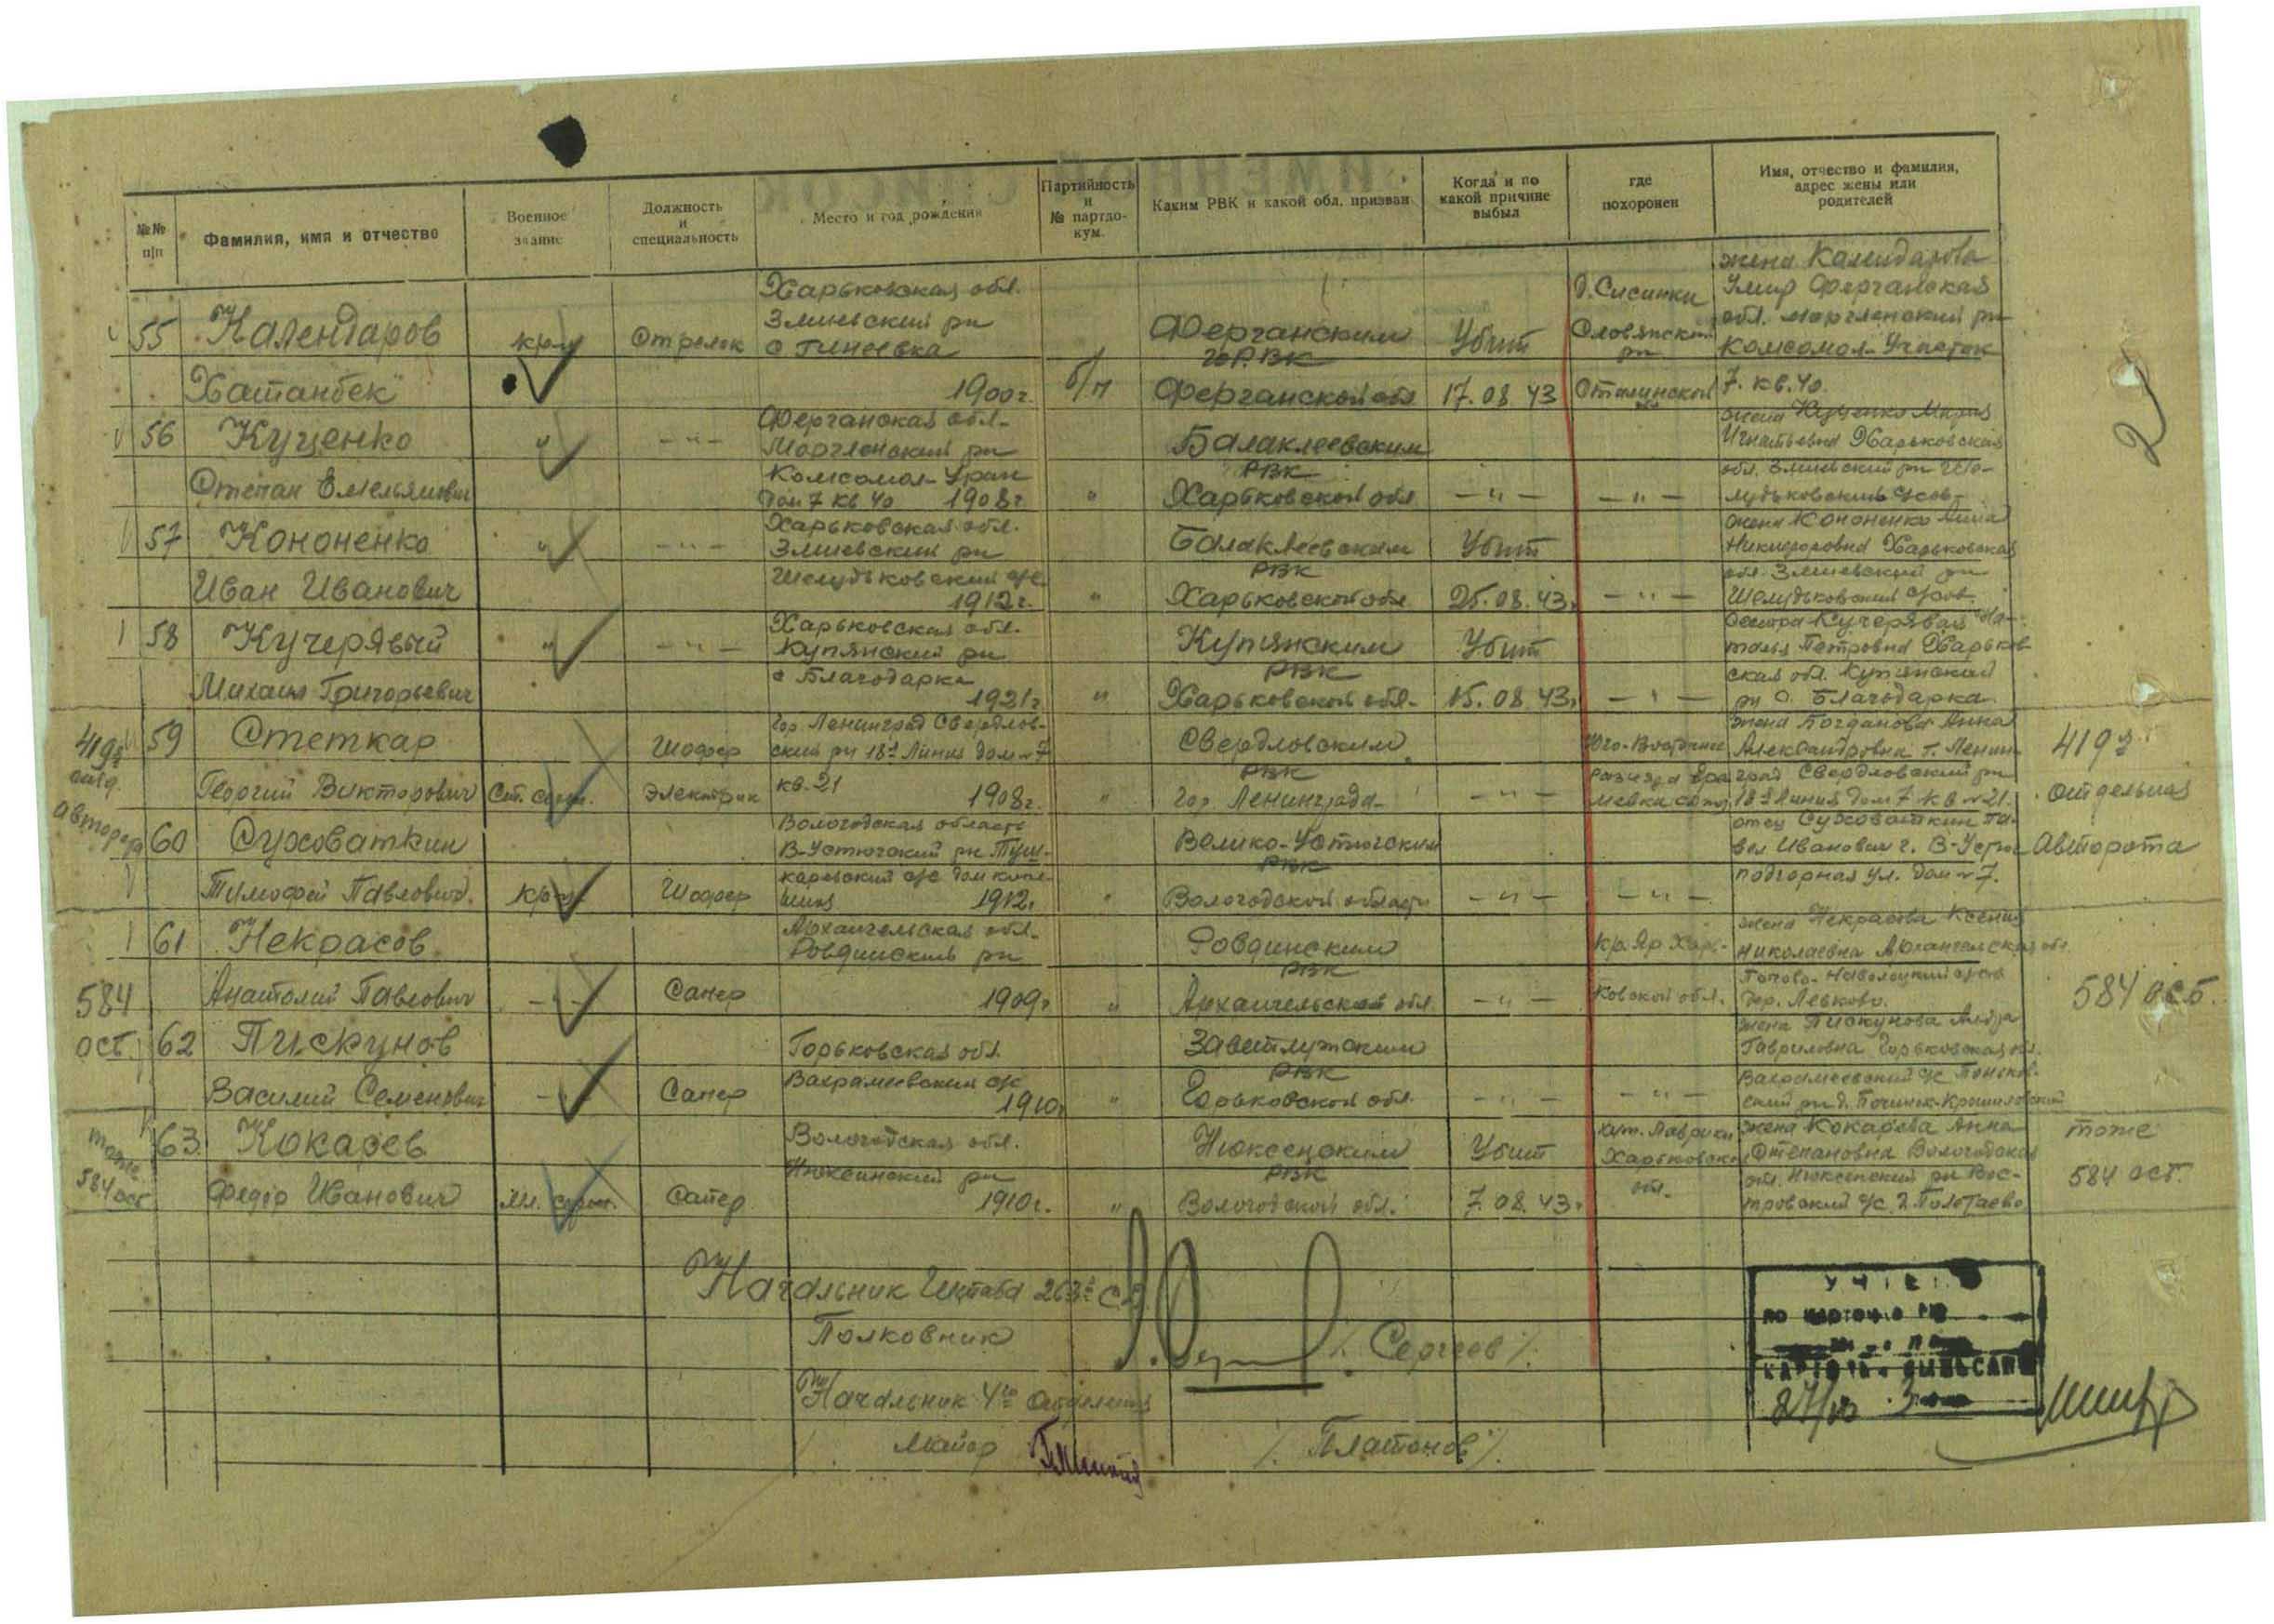 №№ п/п
Фамилия, имя и отчество
Военное звание
Должность и специальность
Место и год рождения
Партийность и № партдокум.
Каким РВК и какой обл. призван
Когда и по какой причине выбыл
где похоронен
Имя, отчество и фамилия, адрес жены или родителей
2
55 Календаров Хатанбек
кр-ц
Стрелок
Харьковская обл. Змиевский рн с Гинеевка 1900г.
б/п
Ферганским РВК Ферганской обл
Убит 17.08.43
Словянский рн Сталинской
жена Календарова Ферганская обл. Маргленский рн Комсомол-Участок 7. кв. 40.
56 Куценко Степан Емельянович
"
— " —
Ферганская обл. Маргленский рн Комсомол- дом 7 кв 40 1908г.
"
Балаклеевским РВК Харьковской обл
— " —
— " —
жена Куценко Мария Игнатьевна Харьковская обл. Змиевский рн
57 Кононенко Иван Иванович
"
— " —
Харьковская обл. Змиевский рн Шелудьковский с/с 1912г.
"
Балаклеевским РВК Харьковской обл
Убит 25.08.43г
— " —
жена Кононенко Анна Никифоровна Харьковская обл. Змиевский рн Шелудьковский с/сов.
58 Кучерявый Михаил Григорьевич
"
— " —
Харьковская обл. Купянский рн с Благодарка 1921г
"
Купянским РВК Харьковской обл.
Убит 15.08.43г
— " —
сестра Кучерявая Наталья Петровна Харьковская обл. Купянский рн с. Благодарка
419я отд. авторота
59 Стеткар Георгий Викторович
Ст. серж.
Шофер Электрик
гор. Ленинград Свердловский рн 18я Линия дом №7 кв. 21 1908г.
"
Свердловским РВК гор. Ленинграда
— " —
Юго-Восточнее разъезда
жена Богданова Анна Александровна г. Ленинград Свердловский рн 18я Линия дом 7 кв №21.
419я отдельная Авторота
60 Суховаткин Тимофей Павлович
кр-ц
Шофер
Вологодская область В-Устюгский рн 1912г
"
Велико-Устюгским РВК Вологодской области
— " —
— " —
отец Суховаткин Павел Иванович г. В-Устюг подгорная ул. дом №7.
584 осб.
61 Некрасов Анатолий Павлович
— " —
Сапер
Архангельская обл. Ровдинский рн 1909г
"
Ровдинским РВК Архангельской обл.
— " —
Кр. Яр Харьковской обл.
жена Некрасова Ксения Николаевна Архангельская обл. Попово-Наволоцкий с/сов дер. Левково.
584 осб.
62 Пискунов Василий Семенович
— " —
Сапер
Горьковская обл. Вахрамеевский с/с 1910г
"
Заветлужским РВК Горьковской обл.
— " —
— " —
жена Пискунова Гавриловна Горьковская обл. Вахрамеевский с/с
тоже 584 осб
63. Кокарев Федор Иванович
Мл. серж.
Сапер
Вологодская обл. Нюксенский рн 1910г.
"
Нюксенским РВК Вологодской обл.
Убит 7.08.43г
хут. Лаврики Харьковской обл.
жена Кокарева Анна Степановна Вологодская обл. Нюксенский рн Востровский с/с
тоже 584 осб.
Начальник Штаба 263й СД
Полковник
/ Сергеев /
Начальник 4го отделения
Майор
/ Платонов /